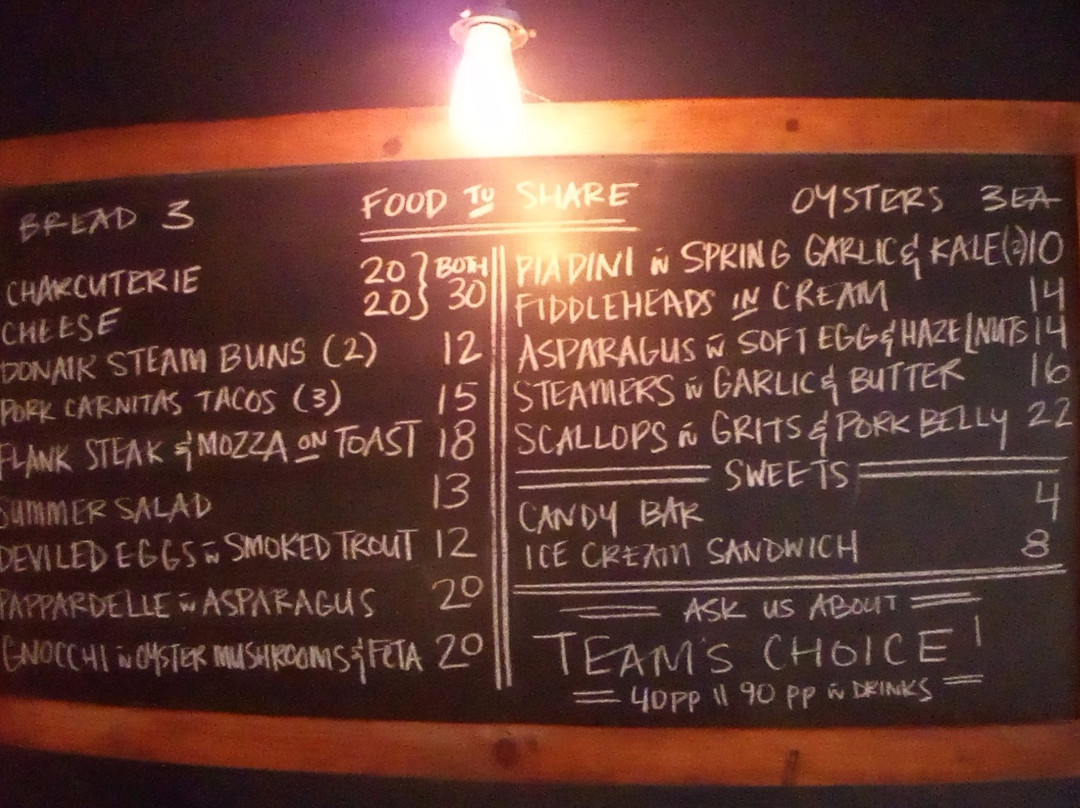 BREAD 3
FOOD TO SHARE
OYSTERS 3EA
CHARCUTERIE 20 } BOTH
CHEESE 20 } 30
DONAIR STEAM BUNS (2) 12
PORK CARNITAS TACOS (3) 15
FLANK STEAK & MOZZA ON TOAST 18
SUMMER SALAD 13
DEVILED EGGS w SMOKED TROUT 12
PAPPARDELLE w ASPARAGUS 20
GNOCCHI w OYSTER MUSHROOMS & FETA 20
PIADINI w SPRING GARLIC & KALE (2) 10
FIDDLEHEADS IN CREAM 14
ASPARAGUS w SOFT EGG & HAZELNUTS 14
STEAMERS w GARLIC & BUTTER 16
SCALLOPS w GRITS & PORK BELLY 22
SWEETS
CANDY BAR 4
ICE CREAM SANDWICH 8
ASK US ABOUT
TEAM'S CHOICE!
40PP || 90 PP w DRINKS